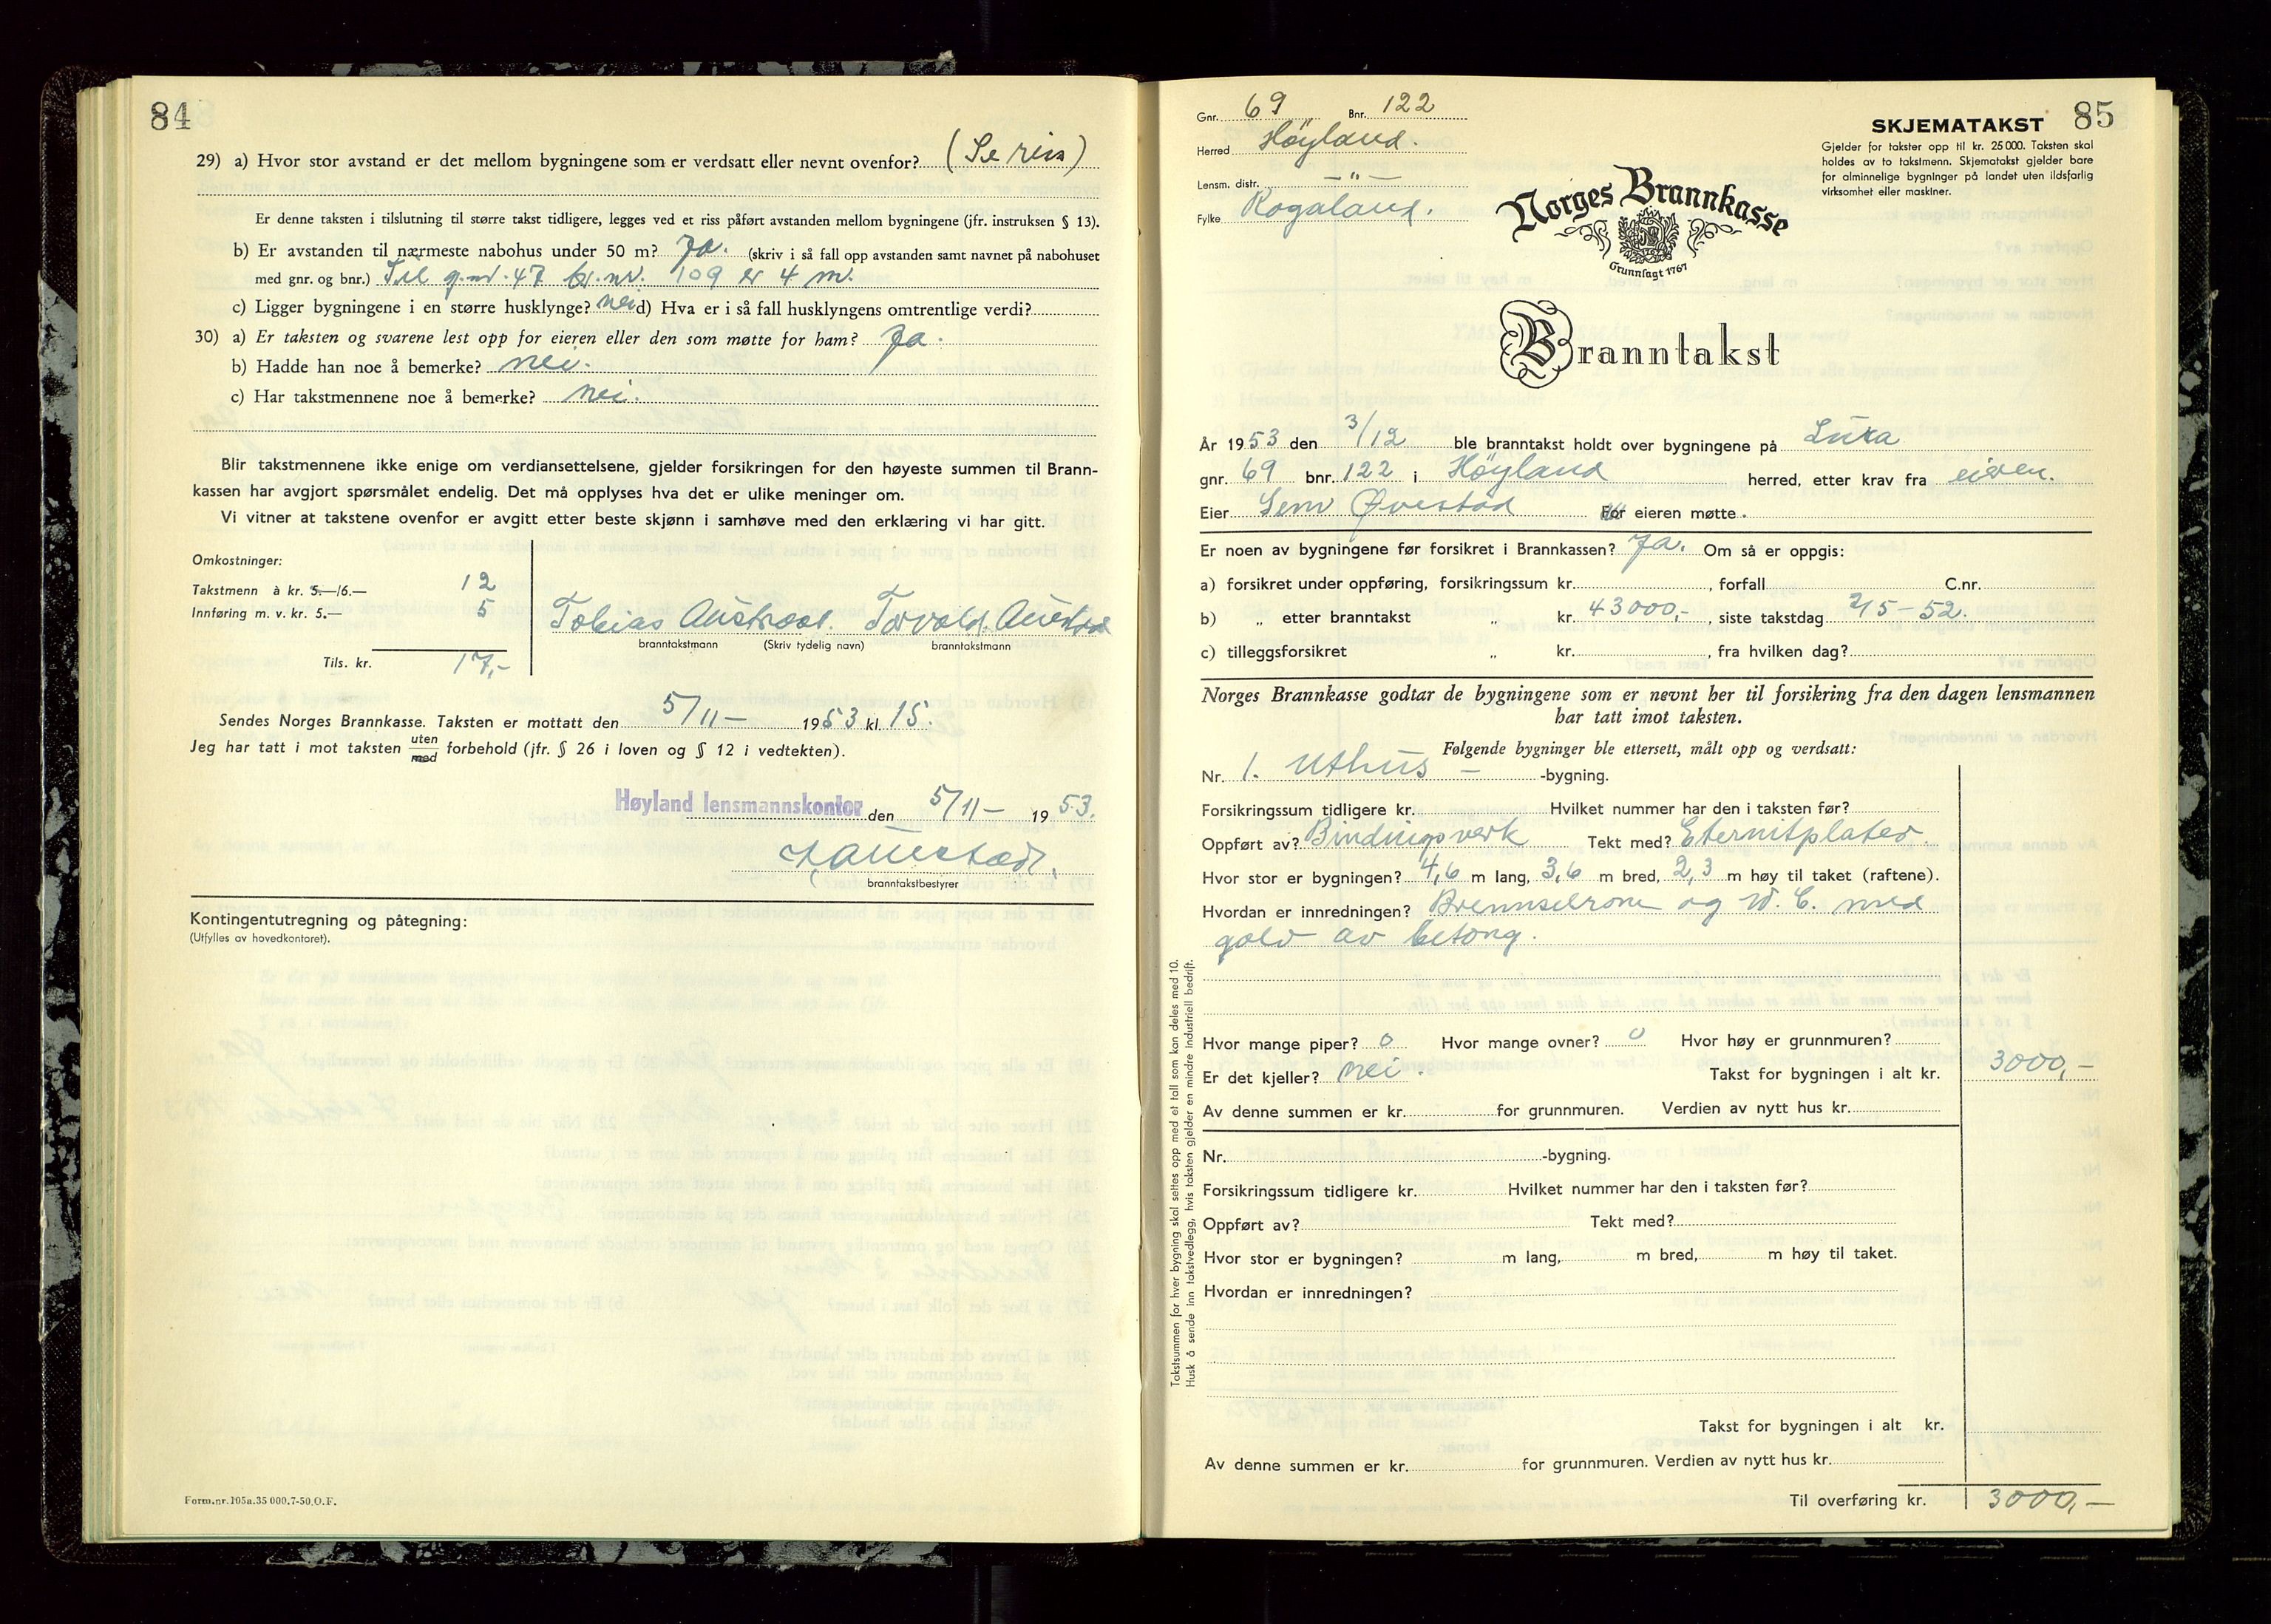 84
29) a) Hvor stor avstand er det mellom bygningene som er verdsatt eller nevnt ovenfor? (Se riss)
Er denne taksten i tilslutning til større takst tidligere, legges ved et riss påført avstanden mellom bygningene (jfr. instruksen § 13).
b) Er avstanden til nærmeste nabohus under 50 m? Ja. (skriv i så fall opp avstanden samt navnet på nabohuset
med gnr. og bnr.) Til g.nr. 47 br.nr. 109 er 4 m.
c) Ligger bygningene i en større husklynge? nei d) Hva er i så fall husklyngens omtrentlige verdi?
30) a) Er taksten og svarene lest opp for eieren eller den som møtte for ham? Ja.
b) Hadde han noe å bemerke? nei.
c) Har takstmennene noe å bemerke? nei.
Blir takstmennene ikke enige om verdiansettelsene, gjelder forsikringen for den høyeste summen til Brann-
kassen har avgjort spørsmålet endelig. Det må opplyses hva det er ulike meninger om.
Vi vitner at takstene ovenfor er avgitt etter beste skjønn i samhøve med den erklæring vi har gitt.
Omkostninger:
Takstmenn à kr. 5.—/6.— 12
Innføring m. v. kr. 5.— 5
Tils. kr. 17,-
Tobias Austraat. Torvald
branntakstmann (Skriv tydelig navn) branntakstmann
Sendes Norges Brannkasse. Taksten er mottatt den 5/11 – 1953 kl. 15.
Jeg har tatt i mot taksten uten/med forbehold (jfr. § 26 i loven og § 12 i vedtekten).
Høyland lensmannskontor den 5/11 – 1953.
branntakstbestyrer
Kontingentutregning og påtegning:
(Utfylles av hovedkontoret).
Form.nr.105a.35 000.7-50.O.F.
85
Gnr. 69 Bnr. 122
Herred Høyland.
Lensm. distr. – " –
Fylke Rogaland.
SKJEMATAKST
Gjelder for takster opp til kr. 25 000. Taksten skal
holdes av to takstmenn. Skjematakst gjelder bare
for alminnelige bygninger på landet uten ildsfarlig
virksomhet eller maskiner.
Norges Brannkasse
Grunnlagt 1767
Branntakst
År 1953 den 3/12 ble branntakst holdt over bygningene på Lura
gnr. 69 bnr. 122 i Høyland herred, etter krav fra eieren.
Eier Øvestad For eieren møtte.
Er noen av bygningene før forsikret i Brannkassen? Ja. Om så er oppgis:
a) forsikret under oppføring, forsikringssum kr. , forfall C.nr.
b) „ etter branntakst „ kr. 43000,- , siste takstdag 2/5 – 52.
c) tilleggsforsikret „ kr. , fra hvilken dag?
Norges Brannkasse godtar de bygningene som er nevnt her til forsikring fra den dagen lensmannen
har tatt imot taksten.
Følgende bygninger ble ettersett, målt opp og verdsatt:
Nr. 1. Uthus – -bygning.
Forsikringssum tidligere kr. Hvilket nummer har den i taksten før?
Oppført av? Bindingsverk Tekt med? Eternitplater
Hvor stor er bygningen? 4,6 m lang, 3,6 m bred, 2,3 m høy til taket (raftene).
Hvordan er innredningen? Brennselrom og W. C. med
golv av betong.
Hvor mange piper? 0 Hvor mange ovner? 0 Hvor høy er grunnmuren?
Er det kjeller? nei. Takst for bygningen i alt kr. 3000,–
Av denne summen er kr. for grunnmuren. Verdien av nytt hus kr.
Nr. -bygning.
Forsikringssum tidligere kr. Hvilket nummer har den i taksten før?
Oppført av? Tekt med?
Hvor stor er bygningen? m lang, m bred, m høy til taket.
Hvordan er innredningen?
Takst for bygningen i alt kr.
Av denne summen er kr. for grunnmuren. Verdien av nytt hus kr.
Til overføring kr. 3000,–
Takstsummen for hver bygning skal settes opp med et tall som kan deles med 10.
Husk å sende inn takstvedlegg, hvis taksten gjelder en mindre industriell bedrift.